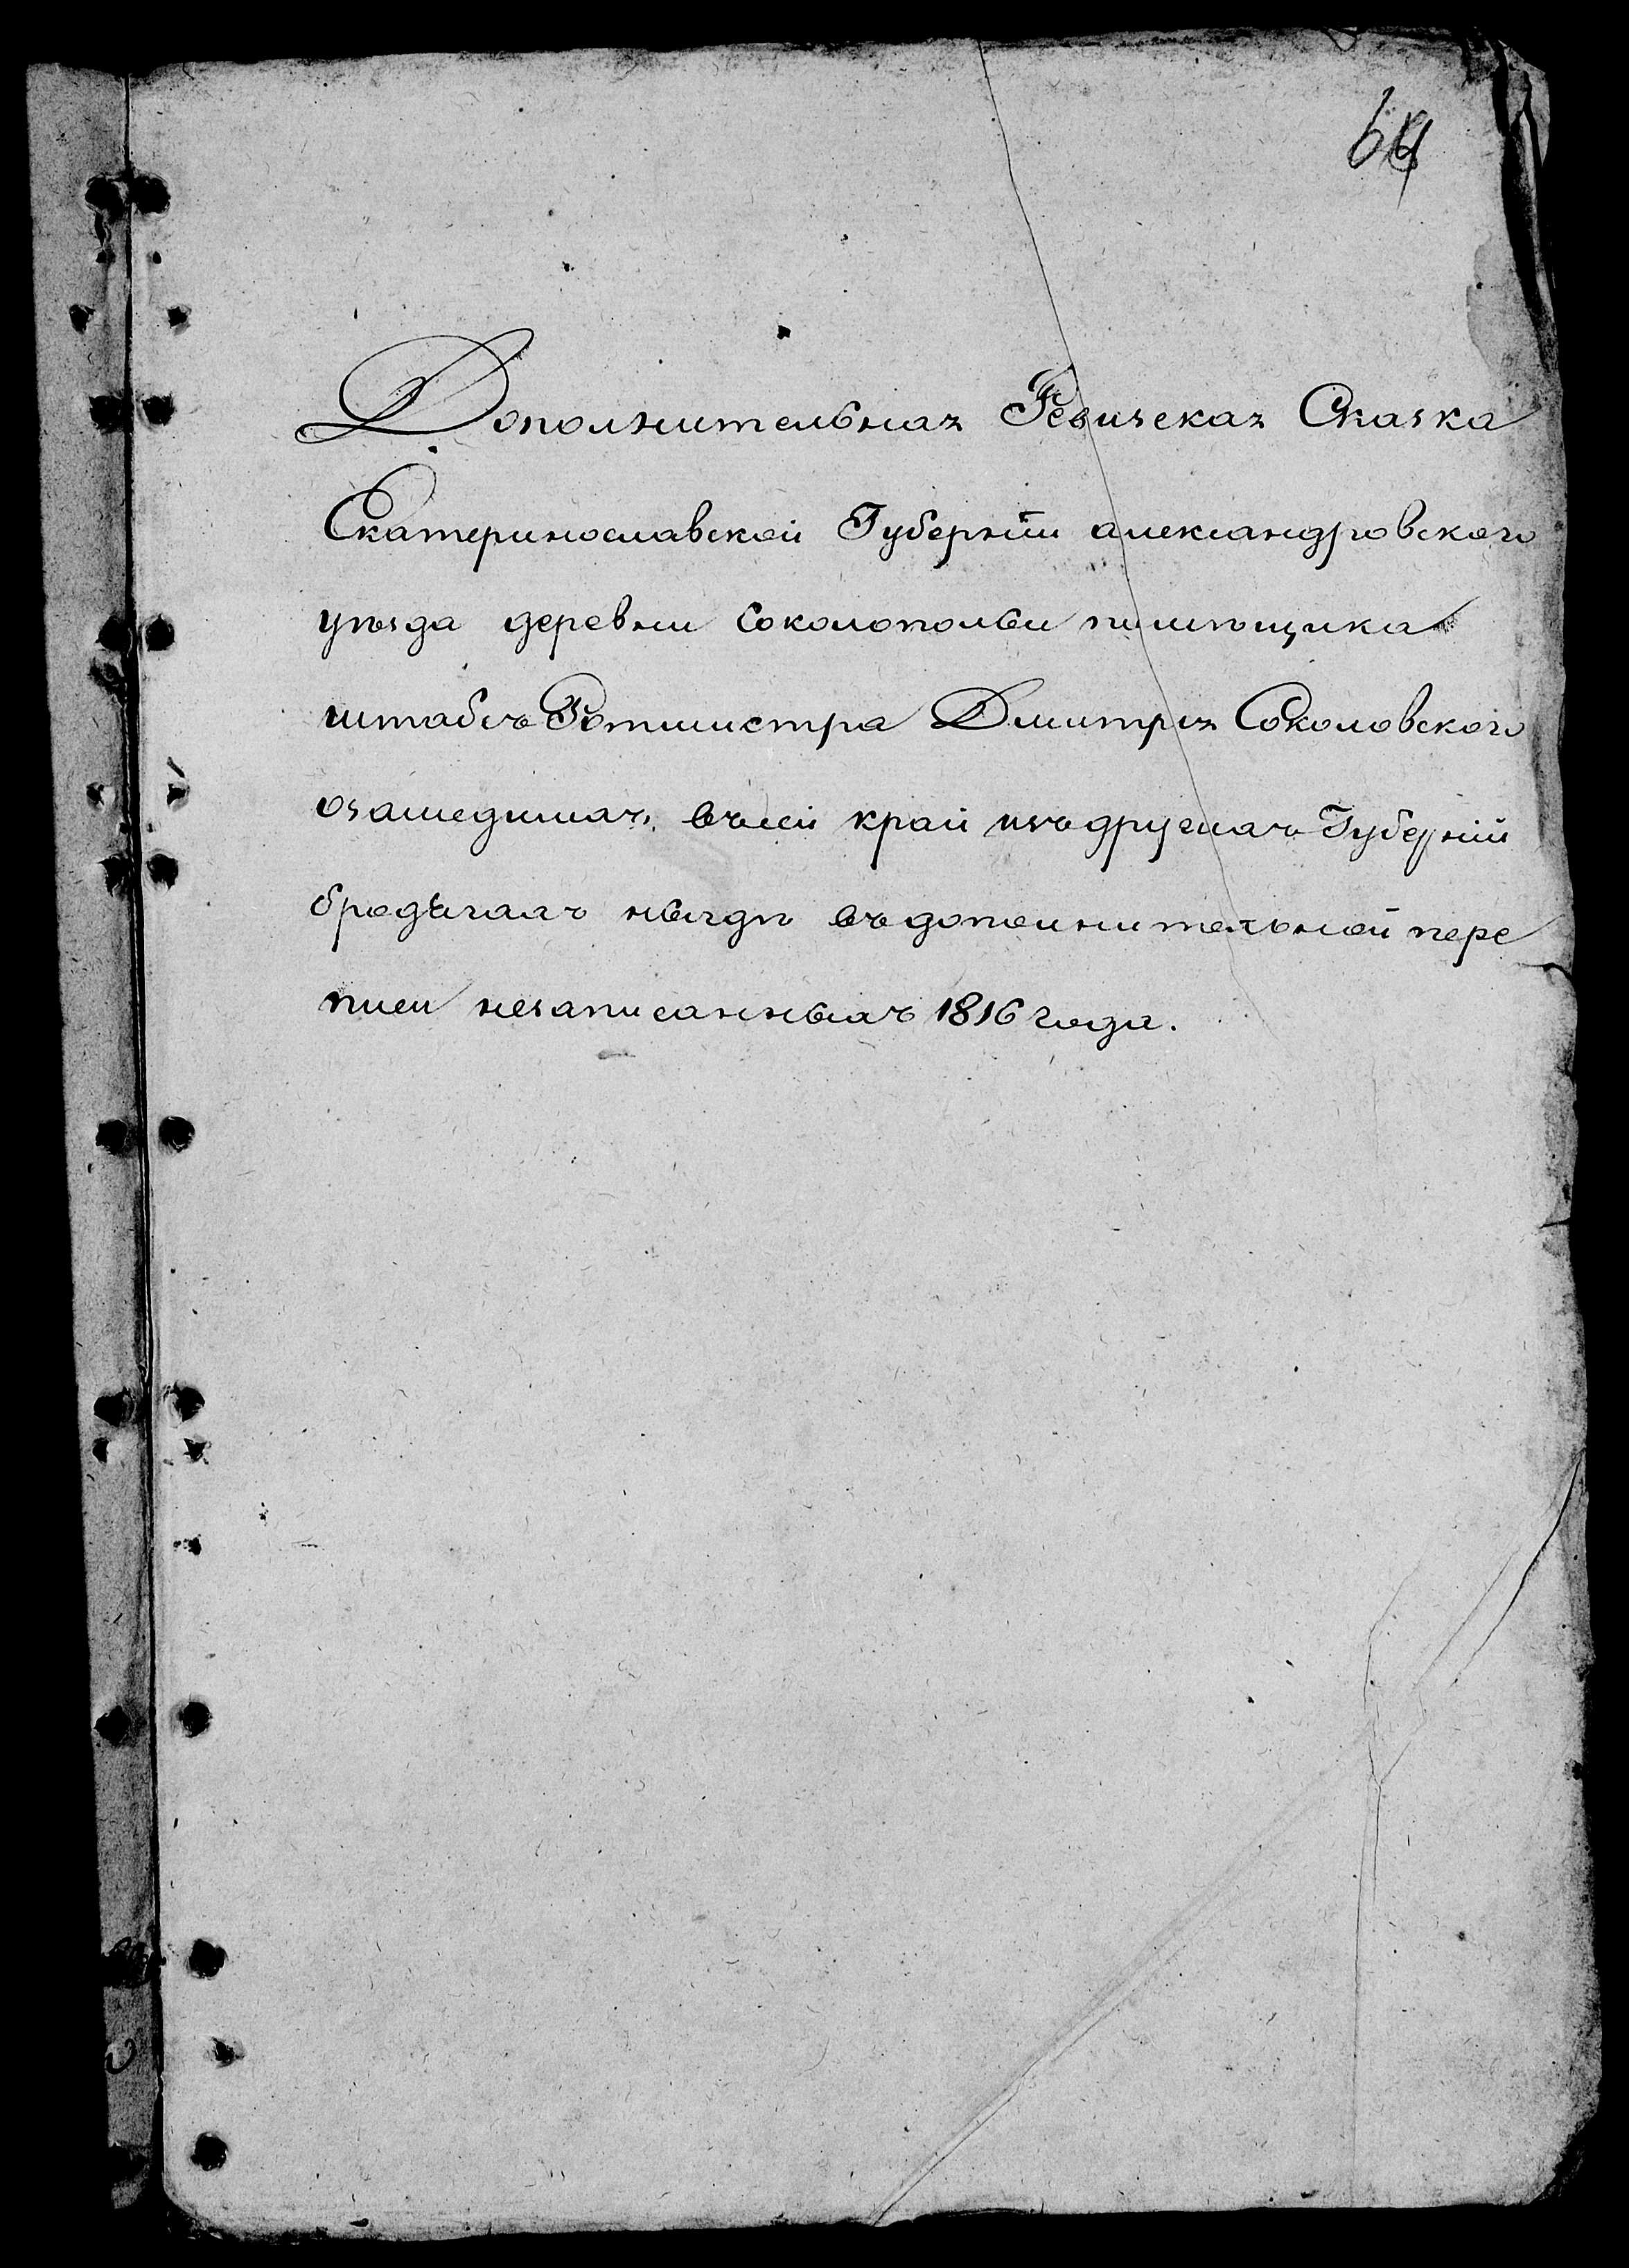 64
Дополнительная Ревизская Сказка
Екатеринославской Губернїи александровского
уѣзда деревни Соколополви помѣщика
штабсъ Ротмистра Дмитрия Соколовского
озашедшихъ въсей край изъдругихъ Губернїй
бродягахъ нигдѣ въдополнительной пере
писи незаписанныхъ 1816 года.